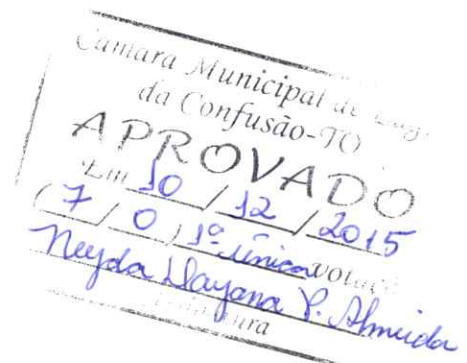 Câmara Municipal de
da Confusão-TO
APROVADO
Em 10 / 12 / 2015
( 7 / 0 ) 1ª única votaç
Neyda Dayana P. Almeida